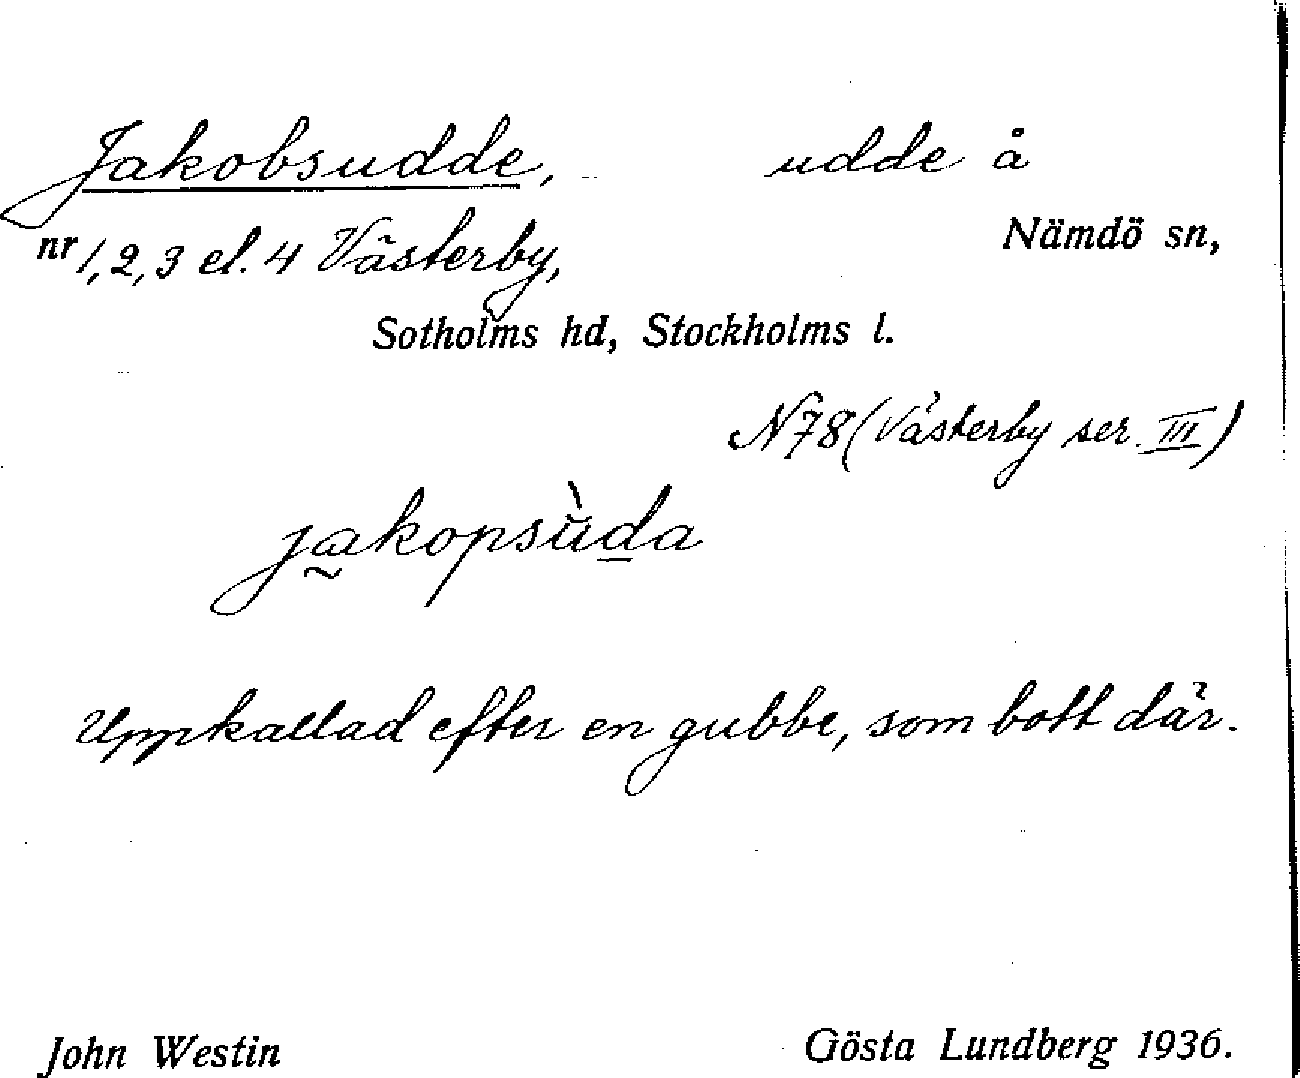 Jakobsudde, udde å
nr 1, 2, 3 el. 4 Västerby, Nämdö sn,
Sotholms hd, Stockholms l.
N78 (Västerby ser. III)
jakopsùda
Uppkallad efter en gubbe, som bott där.
John Westin Gösta Lundberg 1936.